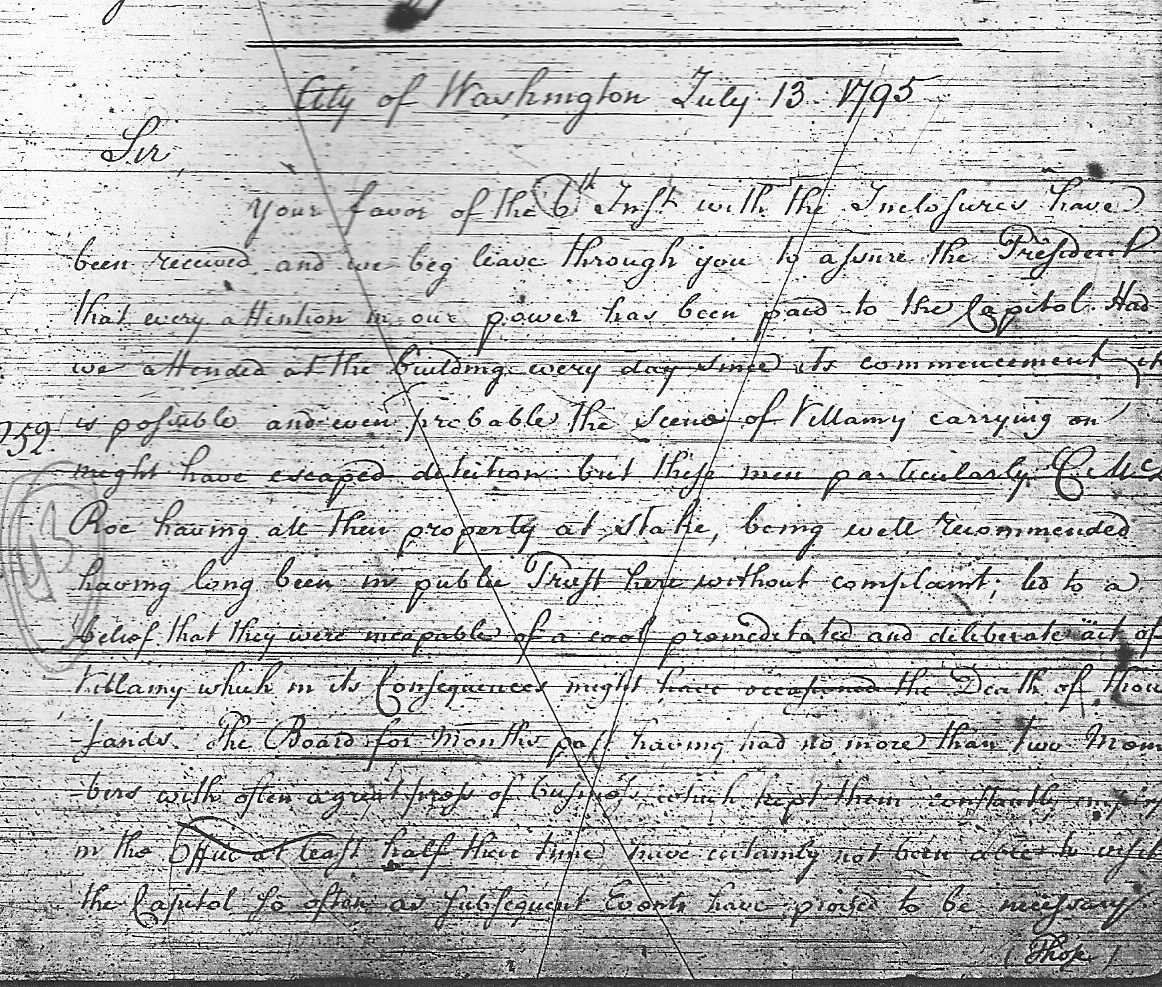 City of Washington July 13. 1795
Sir,
Your favor of the 6th Inst with the Inclosures have
been received and we beg leave through you to assure the President
that every attention in our power has been paid to the Capitol. Had
we attended at the building every day since its commencement it
is possible and even probable the scene of Villamy carrying on
252.
might have escaped detection but these men particularly C. Mc
Roe having all their property at stake, being well recommended
having long been in public Trust here without complaint; led to a
belief that they were incapable of a cool premeditated and deliberate act of
Villamy which in its Consequences might have occasioned the Death of thou
-sands. The Board for Months past having had no more than two Mem
-bers with often a great press of business, which kept them constantly
in the Office at least half their time have certainly not been able to visit
the Capitol so often as subsequent Events have proved to be necessary
(Those)